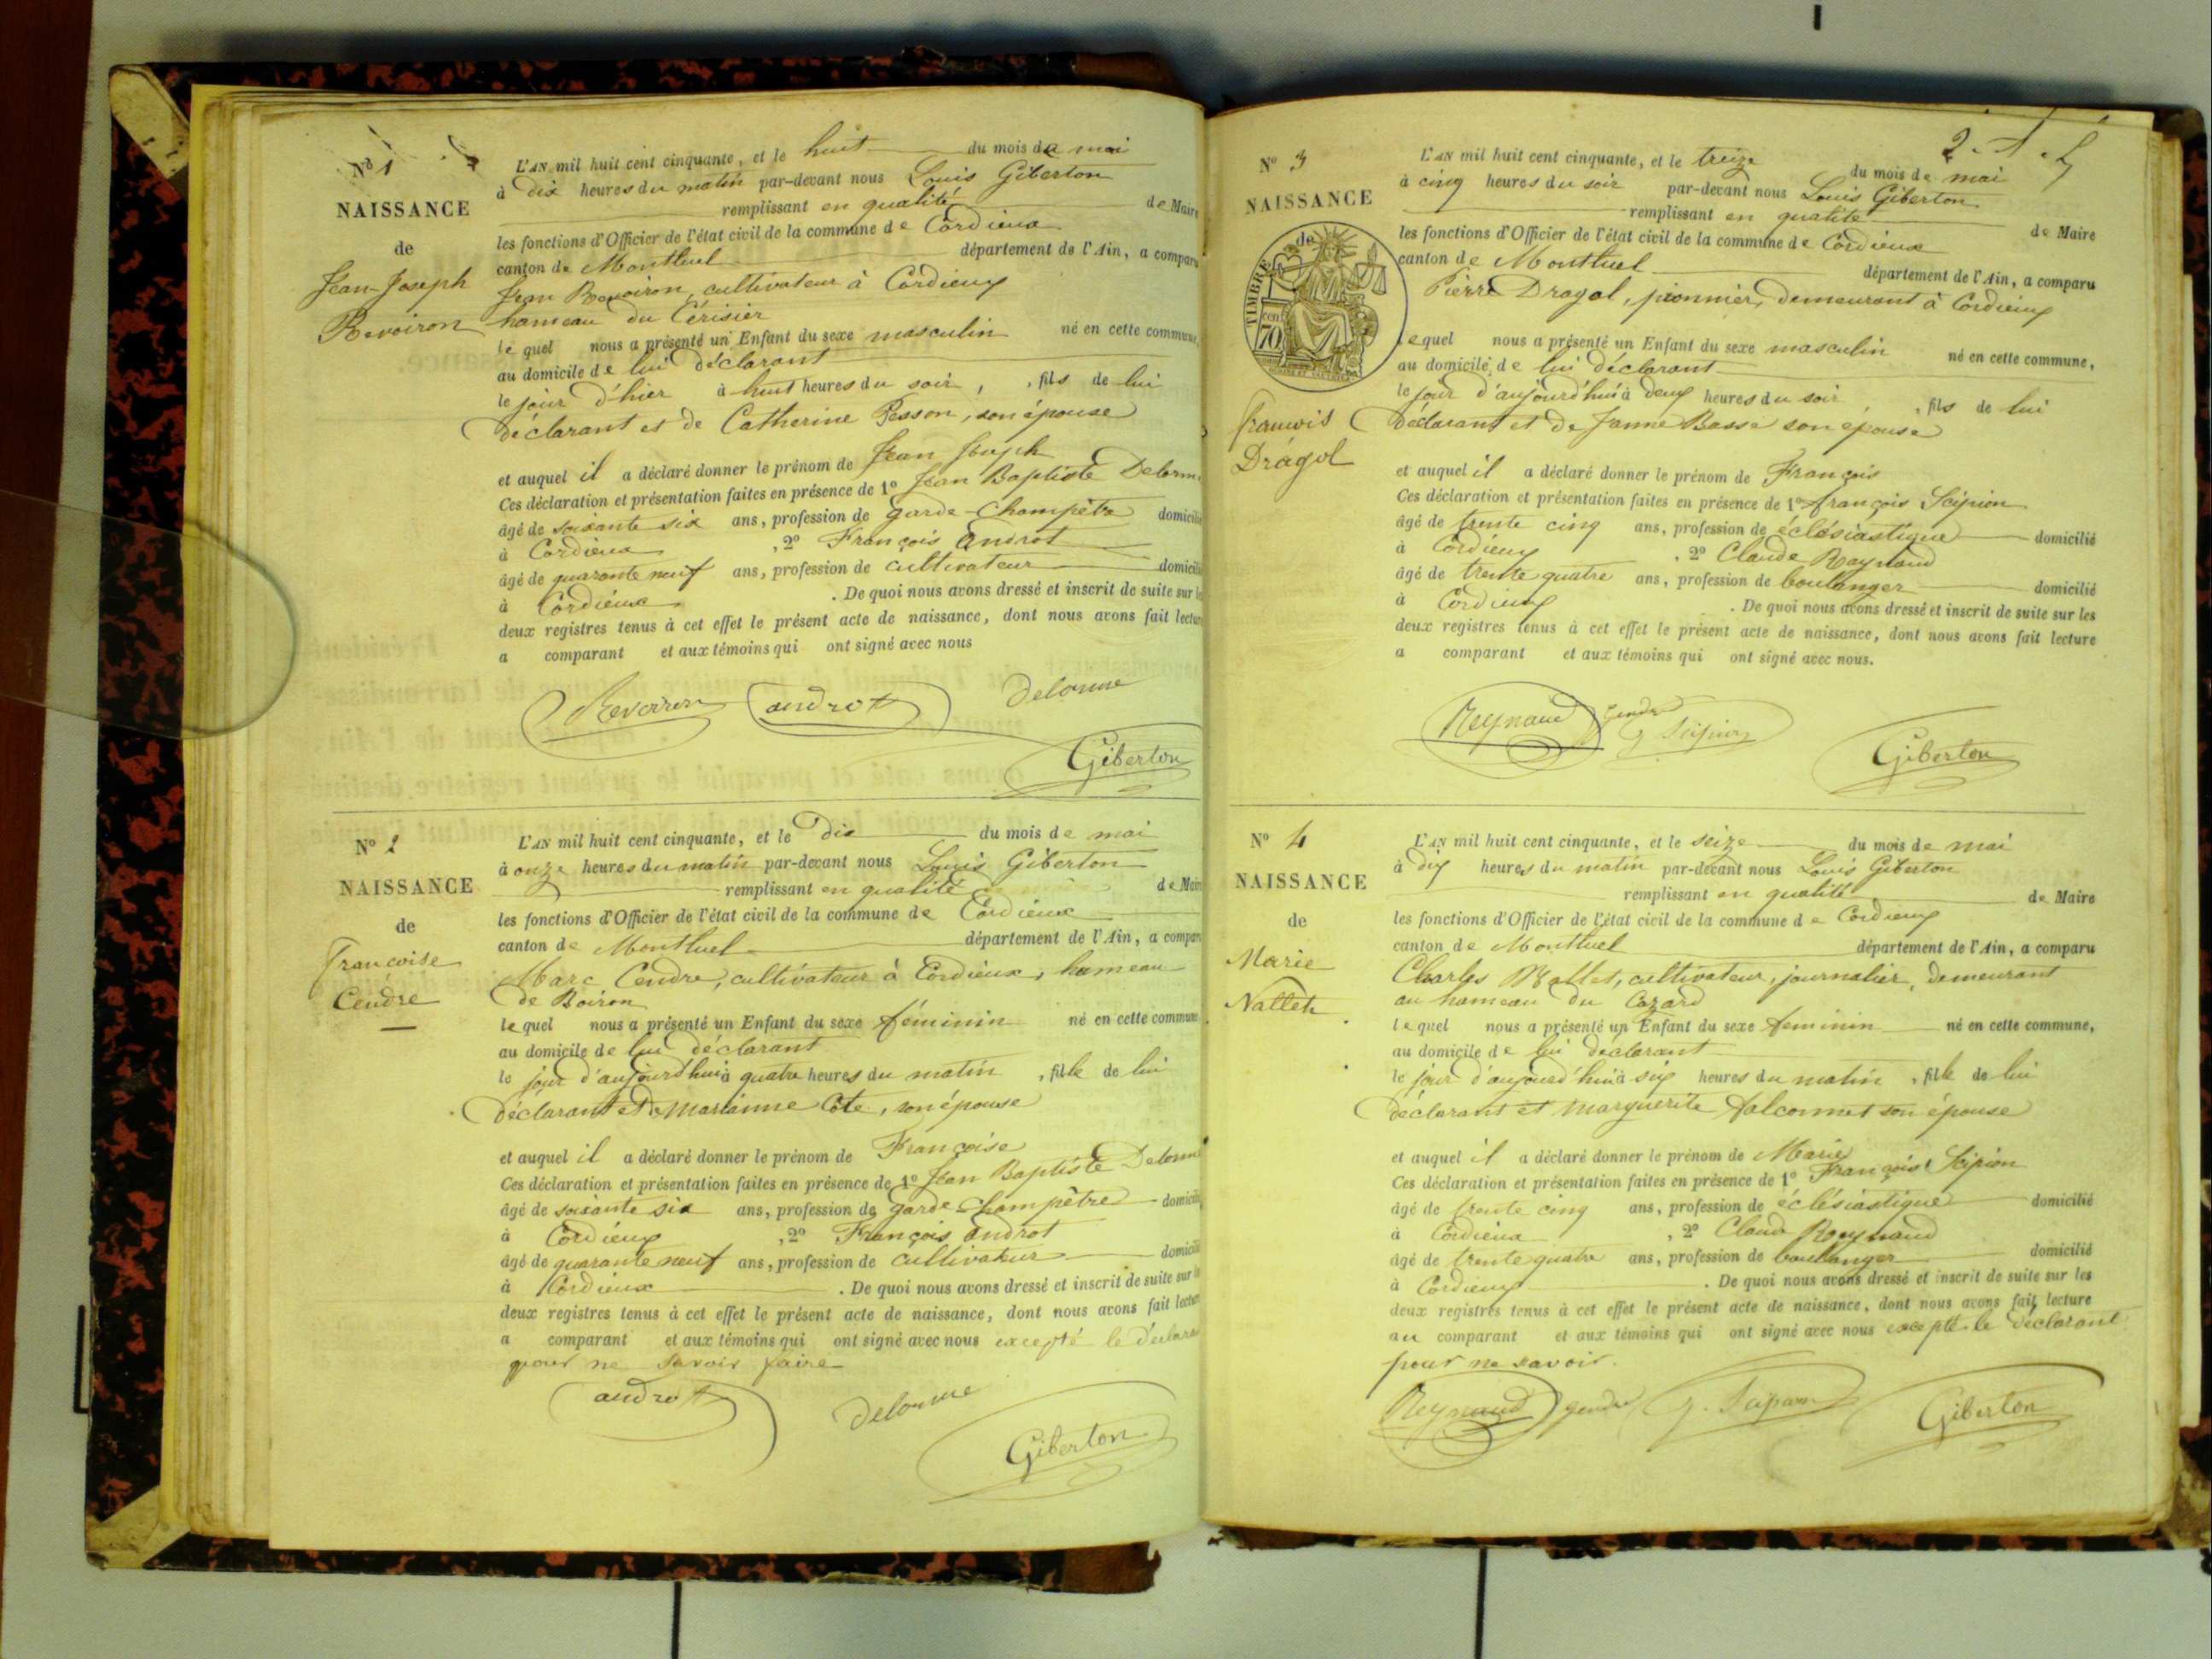 Nº 1
NAISSANCE
de
Jean-Joseph
Revoiron
L'AN mil huit cent cinquante, et le huit du mois de mai
à dix heures du matin par-devant nous Louis Giberton
remplissant en qualité de Maire
les fonctions d'Officier de l'état civil de la commune de Cordieux
canton de Montluel département de l'Ain, a comparu
Jean Revoiron, cultivateur à Cordieux
hameau du Cérisier
lequel nous a présenté un Enfant du sexe masculin né en cette commune,
au domicile de lui déclarant
le jour d'hier à huit heures du soir, , fils de lui
déclarant et de Catherine Pesson, son épouse
et auquel il a déclaré donner le prénom de Jean Joseph
Ces déclaration et présentation faites en présence de 1º Jean Baptiste Delorm
âgé de soixante six ans, profession de garde-Champêtre domicilié
à Cordieux , 2º François Androt
âgé de quarante neuf ans, profession de cultivateur domicilié
à Cordieux . De quoi nous avons dressé et inscrit de suite sur le
deux registres tenus à cet effet le présent acte de naissance, dont nous avons fait lecture
a comparant et aux témoins qui ont signé avec nous
Revoiron androt Delorme
Giberton
Nº 2
NAISSANCE
de
Francoise
Cendre
L'AN mil huit cent cinquante, et le Dix du mois de mai
à onze heures du matin par-devant nous Louis Giberton
remplissant en qualité de Maire
les fonctions d'Officier de l'état civil de la commune de Cordieux
canton de Montluel département de l'Ain, a comparu
Marc Cendre, cultivateur à Cordieux, hameau
de Boiron
lequel nous a présenté un Enfant du sexe féminin né en cette commune
au domicile de lui déclarant
le jour d'aujourd'hui à quatre heures du matin , fille de lui
déclarant et de Marianne Côte, son épouse
et auquel il a déclaré donner le prénom de Françoise
Ces déclaration et présentation faites en présence de 1º Jean Baptiste Delorme
âgé de soixante six ans, profession de garde-Champêtre domicilié
à Cordieux , 2º François Androt
âgé de quarante neuf ans, profession de cultivateur domicilié
à Cordieux . De quoi nous avons dressé et inscrit de suite sur le
deux registres tenus à cet effet le présent acte de naissance, dont nous avons fait lecture
a comparant et aux témoins qui ont signé avec nous excepté le déclara
pour ne savoir faire
androt Delorme
Giberton
2.
Nº 3
NAISSANCE
de
TIMBRE
70 cen
françois
Dragol
L'AN mil huit cent cinquante, et le treize du mois de mai
à cinq heures du soir par-devant nous Louis Giberton
remplissant en qualité de Maire
les fonctions d'Officier de l'état civil de la commune de Cordieux
canton de Montluel département de l'Ain, a comparu
Pierre Dragol, pionnier, demeurant à Cordieux
lequel nous a présenté un Enfant du sexe masculin né en cette commune,
au domicile de lui déclarant
le jour d'aujourd'hui à deux heures du soir , fils de lui
déclarant et de Janne Basse son épouse
et auquel il a déclaré donner le prénom de François
Ces déclaration et présentation faites en présence de 1º françois Scipion
âgé de trente cinq ans, profession de éclésiastique domicilié
à Cordieux , 2º Claude Raynaud
âgé de trente quatre ans, profession de boulanger domicilié
à Cordieux . De quoi nous avons dressé et inscrit de suite sur les
deux registres tenus à cet effet le présent acte de naissance, dont nous avons fait lecture
a comparant et aux témoins qui ont signé avec nous.
Reynaud gendre Scipion
Giberton
Nº 4
NAISSANCE
de
Marie
Nallet
L'AN mil huit cent cinquante, et le seize du mois de mai
à dix heures du matin par-devant nous Louis Giberton
remplissant en qualité de Maire
les fonctions d'Officier de l'état civil de la commune de Cordieux
canton de Montluel département de l'Ain, a comparu
Charles Nallet, cultivateur, journalier, demeurant
au hameau du Cozard
lequel nous a présenté un Enfant du sexe feminin né en cette commune,
au domicile de lui déclarant
le jour d'aujourd'hui à six heures du matin , fille de lui
déclarant et Marguerite falconnet son épouse
et auquel il a déclaré donner le prénom de Marie
Ces déclaration et présentation faites en présence de 1º François Scipion
âgé de trente cinq ans, profession de éclésiastique domicilié
à Cordieux , 2º Claude Raynaud
âgé de trente quatre ans, profession de boullanger domicilié
à Cordieux . De quoi nous avons dressé et inscrit de suite sur les
deux registres tenus à cet effet le présent acte de naissance, dont nous avons fait lecture
au comparant et aux témoins qui ont signé avec nous excepté le déclarant
pour ne savoir.
Reynaud gendre Giberton